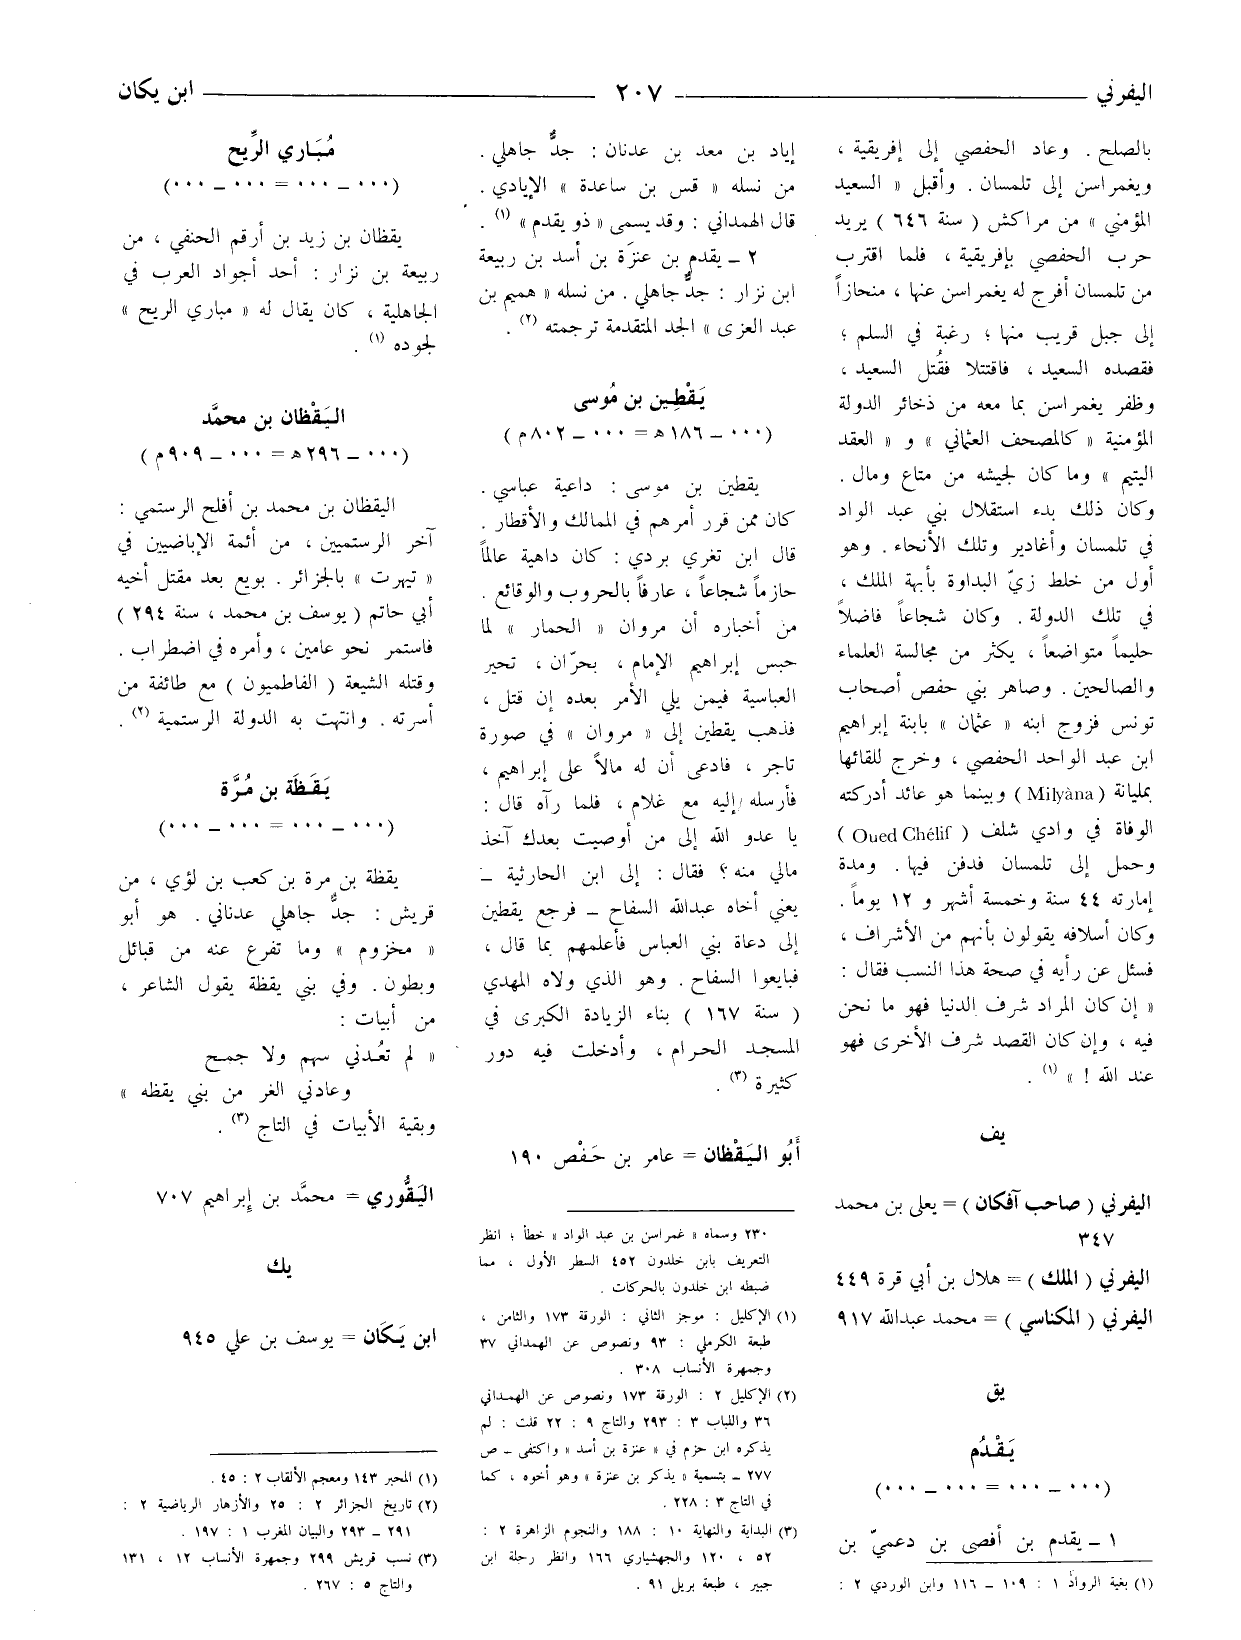 اليفرني — ٢٠٧ — ابن يكان
بالصلح . وعاد الحفصي إلى إفريقية ،
ويغمراسن إلى تلمسان . وأقبل « السعيد
المؤمني » من مراكش ( سنة ٦٤٦ ) يريد
حرب الحفصي بإفريقية ، فلما اقترب
من تلمسان أفرج له يغمراسن عنها ، منحازاً
إلى جبل قريب منها ؛ رغبة في السلم ؛
فقصده السعيد ، فاقتتلا فقُتل السعيد ،
وظفر يغمراسن بما معه من ذخائر الدولة
المؤمنية « كالمصحف العثماني » و « العقد
اليتيم » وما كان لجيشه من متاع ومال .
وكان ذلك بدء استقلال بني عبد الواد
في تلمسان وأغادير وتلك الأنحاء . وهو
أول من خلط زيّ البداوة بأبهة الملك ،
في تلك الدولة . وكان شجاعاً فاضلاً
حليماً متواضعاً ، يكثر من مجالسة العلماء
والصالحين . وصاهر بني حفص أصحاب
تونس فزوج ابنه « عثمان » بابنة إبراهيم
ابن عبد الواحد الحفصي ، وخرج للقائها
بمليانة ( Milyàna ) وبينما هو عائد أدركته
الوفاة في وادي شلف ( Oued Chélif )
وحمل إلى تلمسان فدفن فيها . ومدة
إمارته ٤٤ سنة وخمسة أشهر و ١٢ يوماً .
وكان أسلافه يقولون بأنهم من الأشراف ،
فسئل عن رأيه في صحة هذا النسب فقال :
« إن كان المراد شرف الدنيا فهو ما نحن
فيه ، وإن كان القصد شرف الأخرى فهو
عند الله ! » (١) .
يف
اليفرني ( صاحب آفكان ) = يعلى بن محمد
٣٤٧
اليفرني ( الملك ) = هلال بن أبي قرة ٤٤٩
اليفرني ( المكناسي ) = محمد عبدالله ٩١٧
يق
يَقْدُم
(٠٠٠ ــ ٠٠٠ = ٠٠٠ ــ ٠٠٠)
١ ــ يقدم بن أفصى بن دعميّ بن
(١) بغية الرواد ١ : ١٠٩ ــ ١١٦ وابن الوردي ٢ :
إياد بن معد بن عدنان : جدٌّ جاهلي .
من نسله « قس بن ساعدة » الإيادي .
قال الهمداني : وقد يسمى « ذو يقدم » (١) .
٢ ــ يقدم بن عنزَة بن أسد بن ربيعة
ابن نزار : جدٌّ جاهلي . من نسله « هميم بن
عبد العزى » الجد المتقدمة ترجمته (٢) .
يَقْطِين بن مُوسى
(٠٠٠ ــ ١٨٦ هـ = ٠٠٠ ــ ٨٠٢ م)
يقطين بن موسى : داعية عباسي .
كان ممن قرر أمرهم في الممالك والأقطار .
قال ابن تغري بردي : كان داهية عالماً
حازماً شجاعاً ، عارفاً بالحروب والوقائع .
من أخباره أن مروان « الحمار » لما
حبس إبراهيم الإمام ، بحرّان ، تحير
العباسية فيمن يلي الأمر بعده إن قتل ،
فذهب يقطين إلى « مروان » في صورة
تاجر ، فادعى أن له مالاً على إبراهيم ،
فأرسله إليه مع غلام ، فلما رآه قال :
يا عدو الله إلى من أوصيت بعدك آخذ
مالي منه ؟ فقال : إلى ابن الحارثية ــ
يعني أخاه عبدالله السفاح ــ فرجع يقطين
إلى دعاة بني العباس فأعلمهم بما قال ،
فبايعوا السفاح . وهو الذي ولاه المهدي
( سنة ١٦٧ ) بناء الزيادة الكبرى في
المسجد الحرام ، وأدخلت فيه دور
كثيرة (٣) .
أَبُو اليَقْظَان = عامر بن حَفْص ١٩٠
٢٣٠ وسماه « غمراسن بن عبد الواد » خطأ ؛ انظر
التعريف بابن خلدون ٤٥٢ السطر الأول ، مما
ضبطه ابن خلدون بالحركات .
(١) الإكليل : موجز الثاني : الورقة ١٧٣ والثامن ،
طبعة الكرملي : ٩٣ ونصوص عن الهمداني ٣٧
وجمهرة الأنساب ٣٠٨ .
(٢) الإكليل ٢ : الورقة ١٧٣ ونصوص عن الهمداني
٣٦ واللباب ٣ : ٢٩٣ والتاج ٩ : ٢٢ قلت : لم
يذكره ابن حزم في « عنزة بن أسد » واكتفى ــ ص
٢٧٧ ــ بتسمية « يذكر بن عنزة » وهو أخوه ، كما
في التاج ٣ : ٢٢٨ .
(٣) البداية والنهاية ١٠ : ١٨٨ والنجوم الزاهرة ٢ :
٥٢ ، ١٢٠ والجهشياري ١٦٦ وانظر رحلة ابن
جبير ، طبعة بريل ٩١ .
مُبَاري الرِّيح
(٠٠٠ ــ ٠٠٠ = ٠٠٠ ــ ٠٠٠)
يقظان بن زيد بن أرقم الحنفي ، من
ربيعة بن نزار : أحد أجواد العرب في
الجاهلية ، كان يقال له « مباري الريح »
لجوده (١) .
اليَقْظان بن محمَّد
(٠٠٠ ــ ٢٩٦ هـ = ٠٠٠ ــ ٩٠٩ م)
اليقظان بن محمد بن أفلح الرستمي :
آخر الرستميين ، من أئمة الإباضيين في
« تيهرت » بالجزائر . بويع بعد مقتل أخيه
أبي حاتم ( يوسف بن محمد ، سنة ٢٩٤ )
فاستمر نحو عامين ، وأمره في اضطراب .
وقتله الشيعة ( الفاطميون ) مع طائفة من
أسرته . وانتهت به الدولة الرستمية (٢) .
يَقَظَة بن مُرَّة
(٠٠٠ ــ ٠٠٠ = ٠٠٠ ــ ٠٠٠)
يقظة بن مرة بن كعب بن لؤي ، من
قريش : جدٌّ جاهلي عدناني . هو أبو
« مخزوم » وما تفرع عنه من قبائل
وبطون . وفي بني يقظة يقول الشاعر ،
من أبيات :
« لم تعُدني سهم ولا جمح
وعادني الغر من بني يقظه »
وبقية الأبيات في التاج (٣) .
اليَقُّوري = محمَّد بن إبراهيم ٧٠٧
يك
ابن يَكَان = يوسف بن علي ٩٤٥
(١) المحبر ١٤٣ ومعجم الألقاب ٢ : ٤٥ .
(٢) تاريخ الجزائر ٢ : ٢٥ والأزهار الرياضية ٢ :
٢٩١ ــ ٢٩٣ والبيان المغرب ١ : ١٩٧ .
(٣) نسب قريش ٢٩٩ وجمهرة الأنساب ١٢ ، ١٣١
والتاج ٥ : ٢٦٧ .